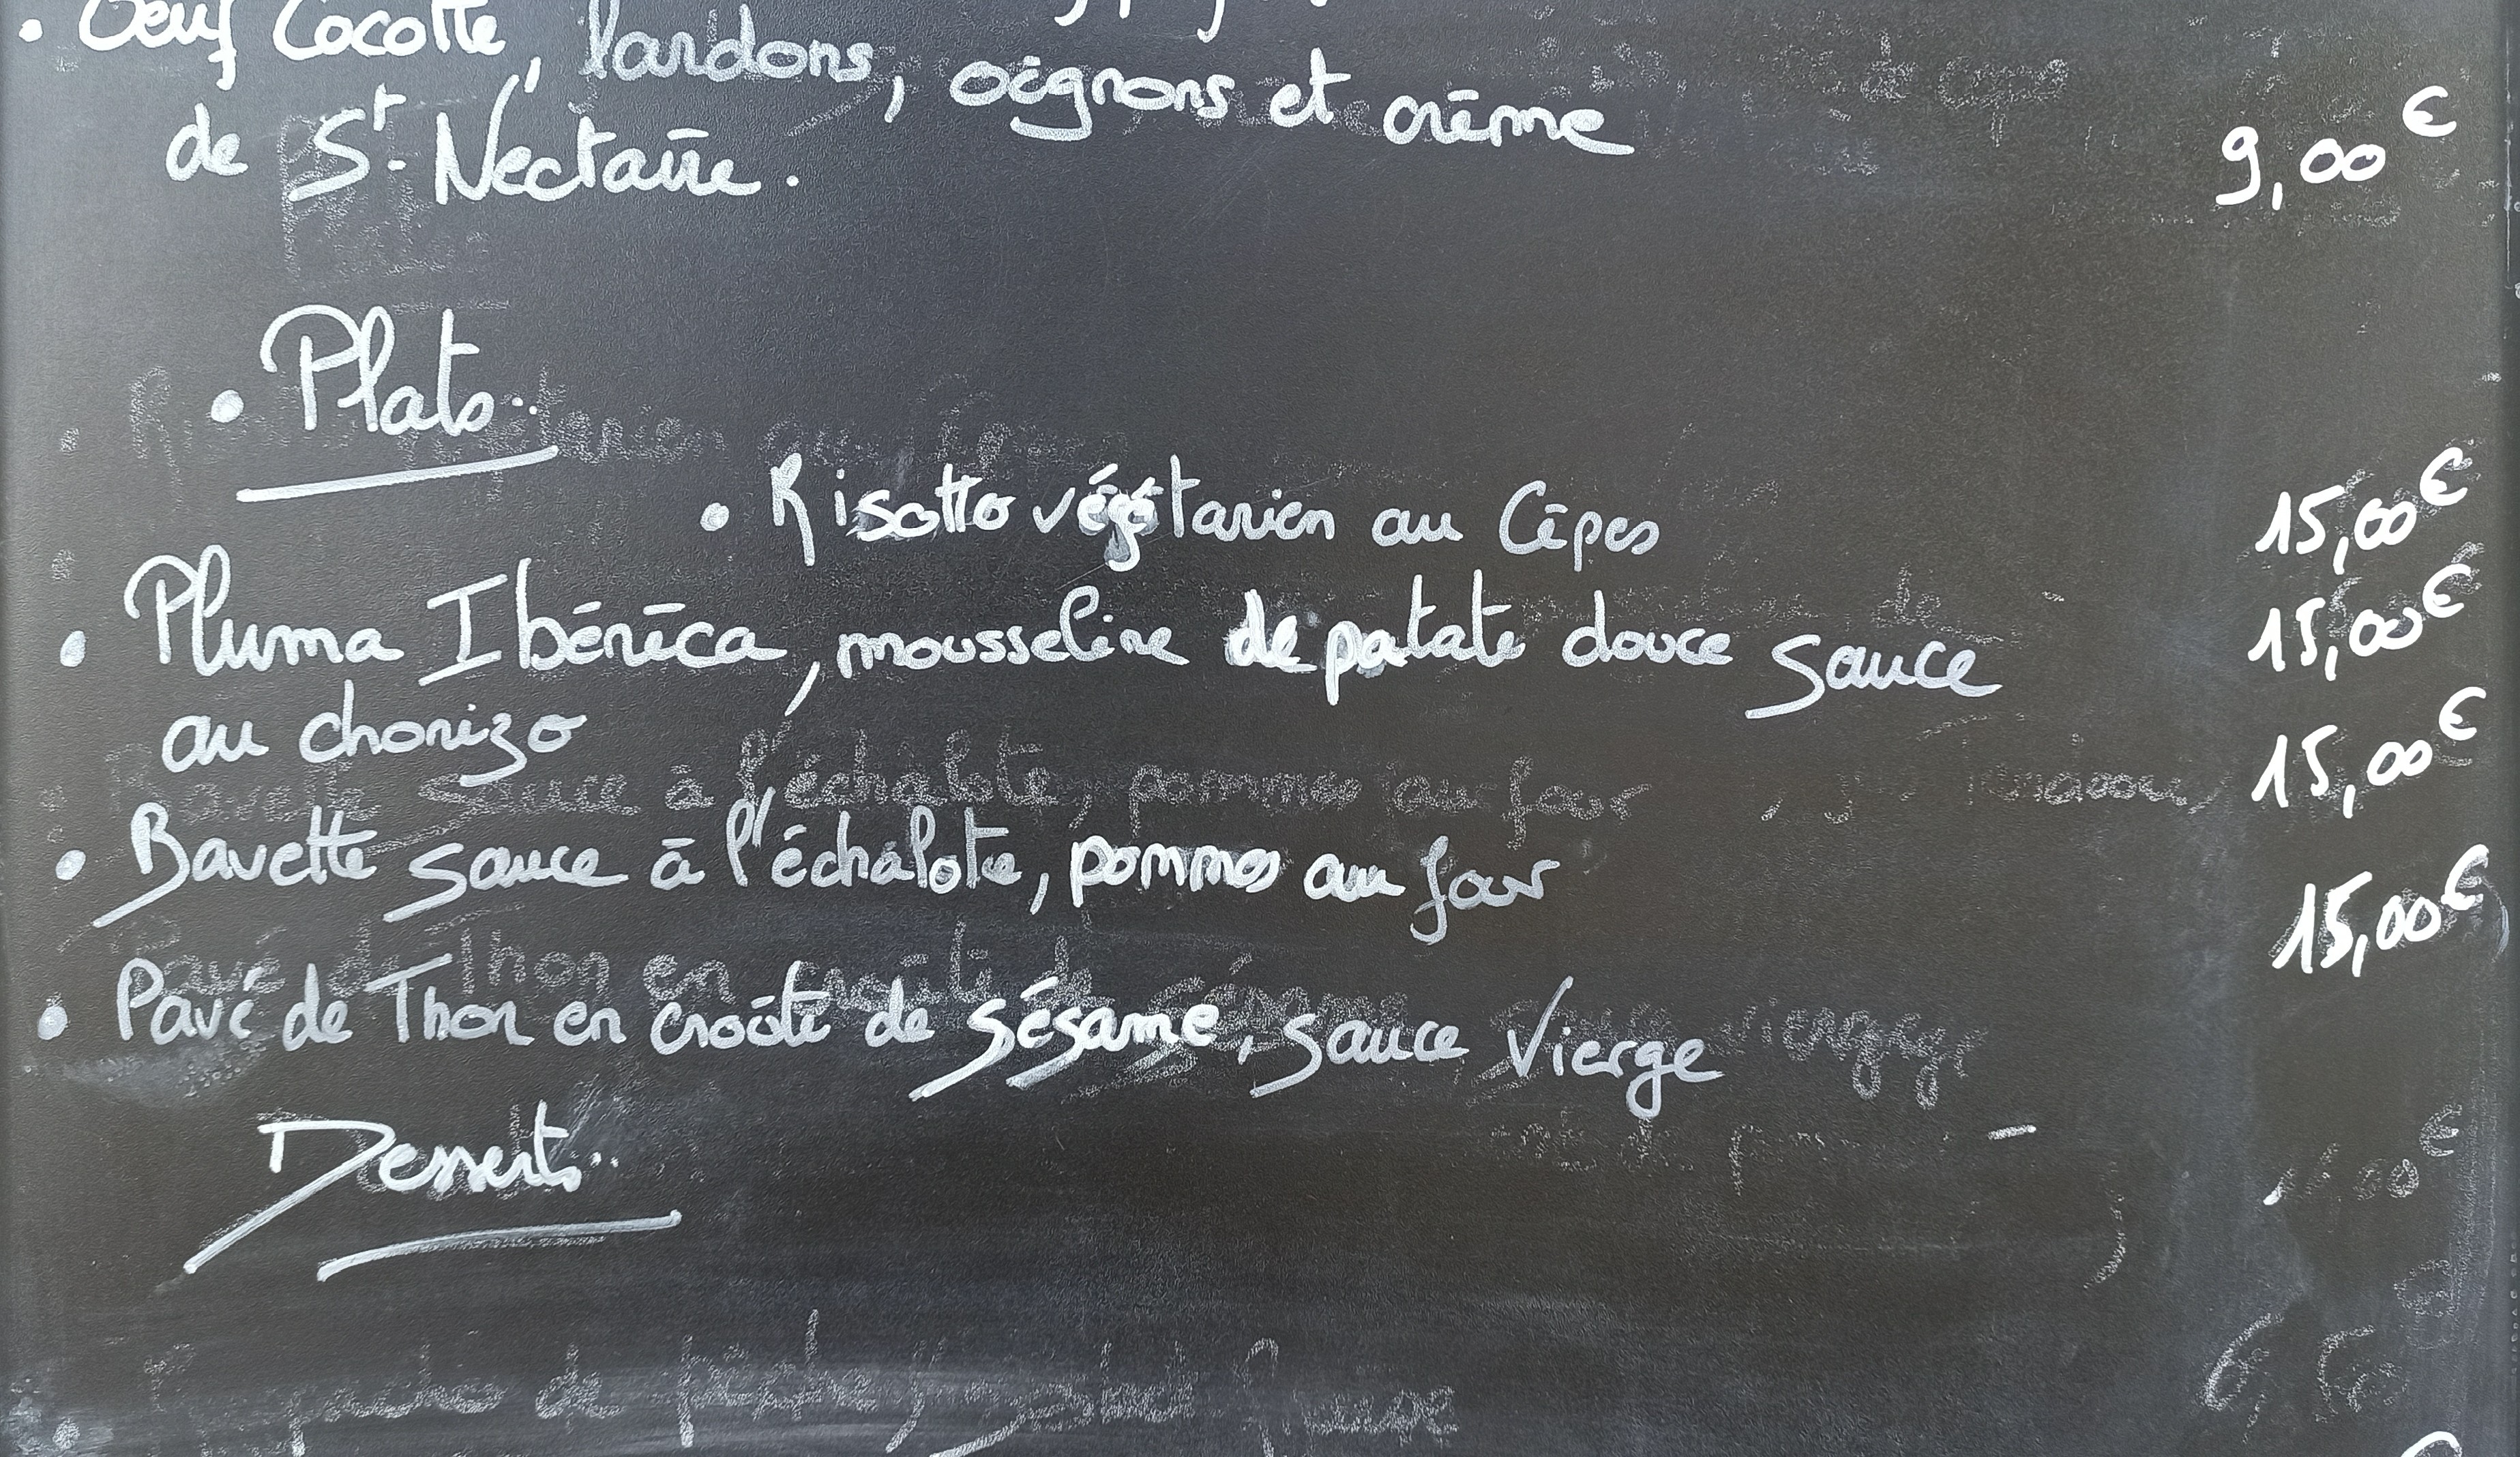 • Oeuf Cocotte, lardons, oignons et crème
de St. Nectaire. 9,00€
• Plats..
• Risotto végétarien au Cèpes 15,00€
• Pluma Ibérica, mousseline de patate douce sauce 15,00€
au chorizo
• Bavette sauce à l'échalote, pommes au four 15,00€
• Pavé de Thon en croûte de sésame, sauce Vierge 15,00€
Desserts..